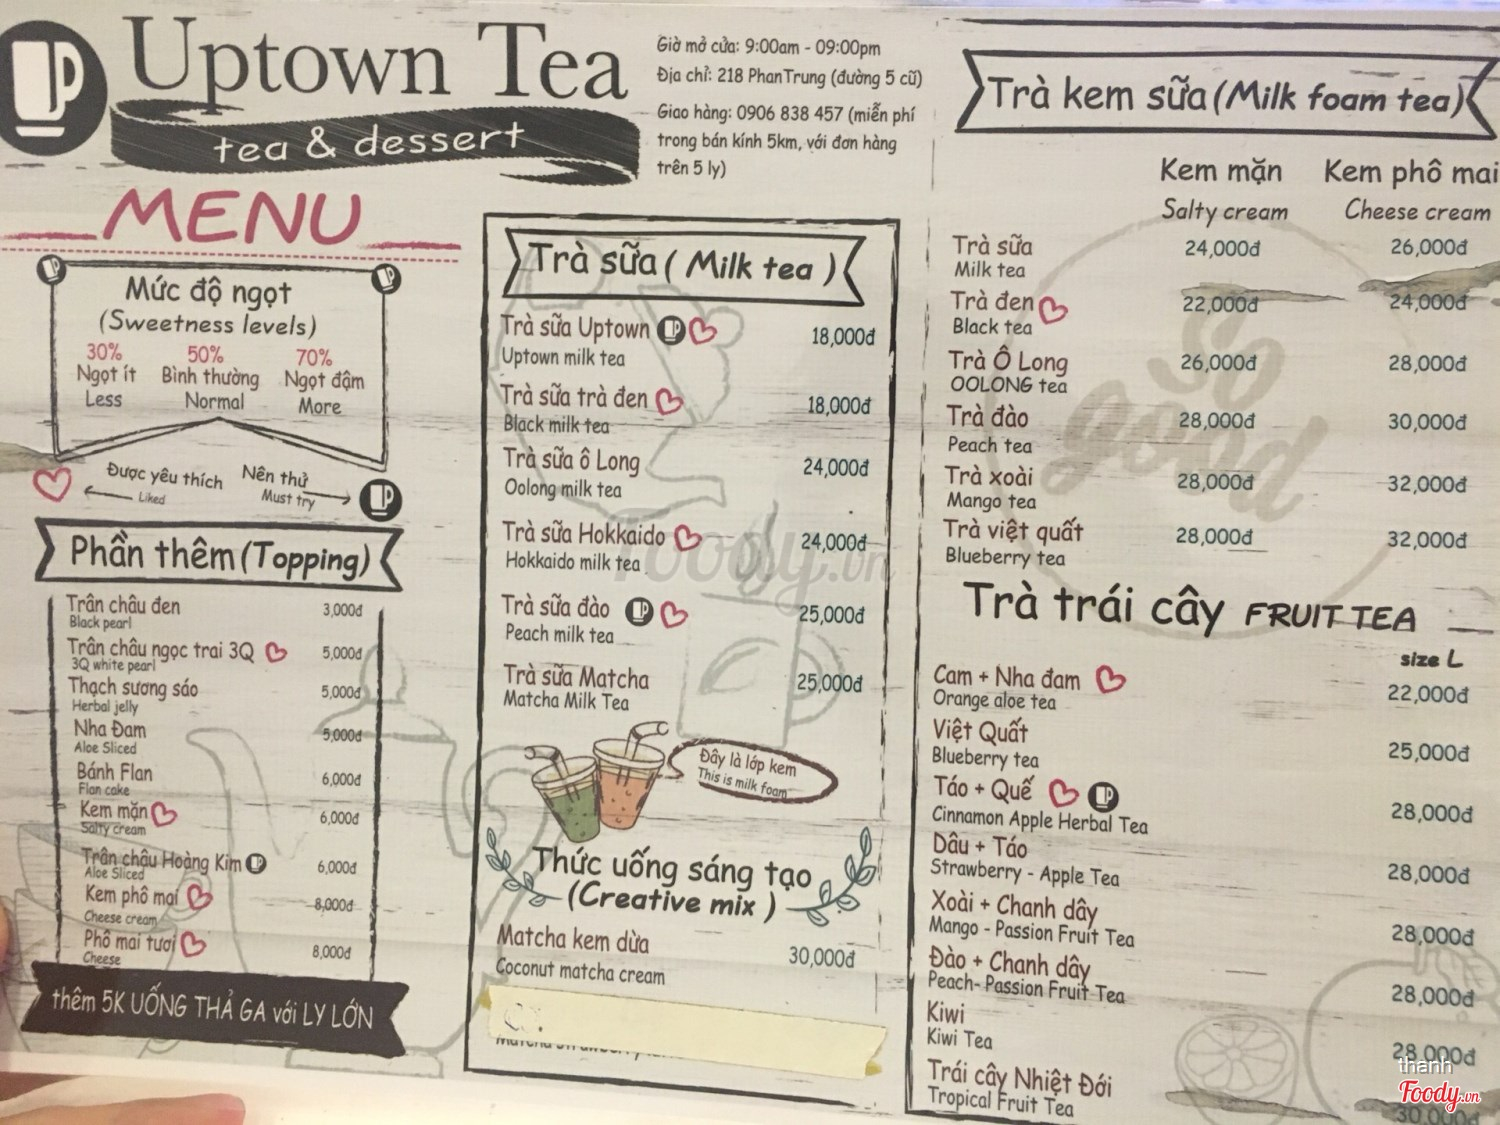 Uptown Tea
tea & dessert
Giờ mở cửa: 9:00am - 09:00pm
Địa chỉ: 218 PhanTrung (đường 5 cũ)
Giao hàng: 0906 838 457 (miễn phí
trong bán kính 5km, với đơn hàng
trên 5 ly)
MENU
Mức độ ngọt
(Sweetness levels)
30% 50% 70%
Ngọt ít Bình thường Ngọt đậm
Less Normal More
Được yêu thích Nên thử
Liked Must try
Phần thêm (Topping)
Trân châu đen 3,000đ
Black pearl
Trân châu ngọc trai 3Q 5,000đ
3Q white pearl
Thạch sương sáo 5,000đ
Herbal jelly
Nha Đam 5,000đ
Aloe Sliced
Bánh Flan 6,000đ
Flan cake
Kem mặn 6,000đ
Salty cream
Trân châu Hoàng Kim 6,000đ
Aloe Sliced
Kem phô mai 8,000đ
Cheese cream
Phô mai tươi 8,000đ
Cheese
thêm 5K UỐNG THẢ GA với LY LỚN
Trà sữa ( Milk tea )
Trà sữa Uptown 18,000đ
Uptown milk tea
Trà sữa trà đen 18,000đ
Black milk tea
Trà sữa ô Long 24,000đ
Oolong milk tea
Trà sữa Hokkaido 24,000đ
Hokkaido milk tea
Trà sữa đào 25,000đ
Peach milk tea
Trà sữa Matcha 25,000đ
Matcha Milk Tea
Đây là lớp kem
This is milk foam
Thức uống sáng tạo
(Creative mix )
Matcha kem dừa 30,000đ
Coconut matcha cream
Trà kem sữa (Milk foam tea)
Kem mặn Kem phô mai
Salty cream Cheese cream
Trà sữa 24,000đ 26,000đ
Milk tea
Trà đen 22,000đ 24,000đ
Black tea
Trà Ô Long 26,000đ 28,000đ
OOLONG tea
Trà đào 28,000đ 30,000đ
Peach tea
Trà xoài 28,000đ 32,000đ
Mango tea
Trà việt quất 28,000đ 32,000đ
Blueberry tea
So good
Trà trái cây FRUIT TEA
size L
Cam + Nha đam 22,000đ
Orange aloe tea
Việt Quất 25,000đ
Blueberry tea
Táo + Quế 28,000đ
Cinnamon Apple Herbal Tea
Dâu + Táo 28,000đ
Strawberry - Apple Tea
Xoài + Chanh dây 28,000đ
Mango - Passion Fruit Tea
Đào + Chanh dây 28,000đ
Peach- Passion Fruit Tea
Kiwi 28,000đ
Kiwi Tea
Trái cây Nhiệt Đới 30,000đ
Tropical Fruit Tea
foody.vn
thanh
Foody.vn